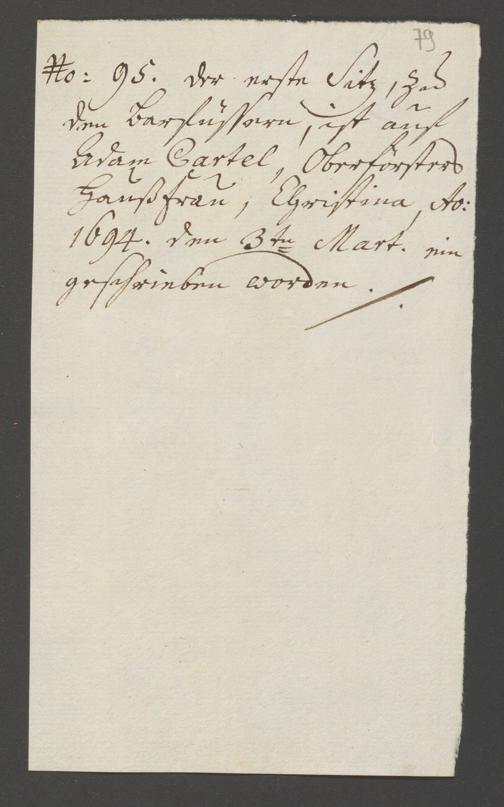 79
No: 95. der erste Sitz, zu
den Barfüssern, ist auf
Adam Bartel, Oberförsters
Haußfrau, Christina, Ao:
1694. den 3tn Mart. ein
geschrieben worden.